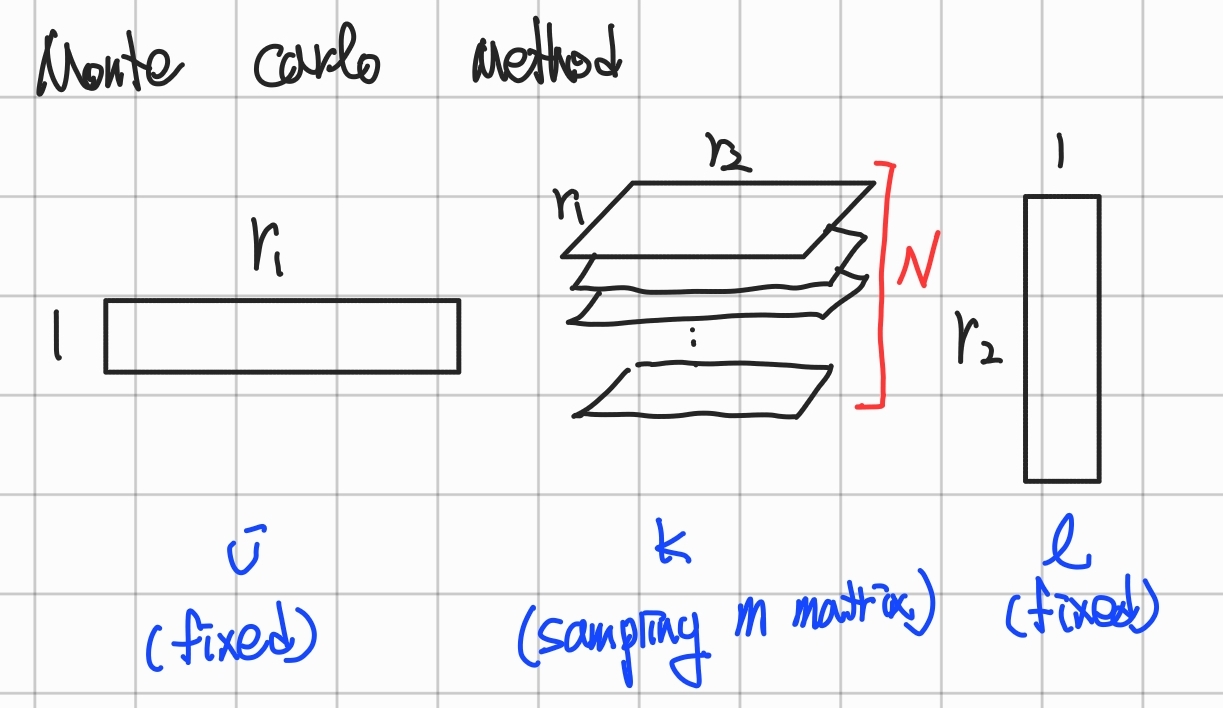 Monte Carlo Method
r2
1
r1
r1
N
1
r2
⋮
k
l
(fixed)
(sampling m matrix)
(fixed)